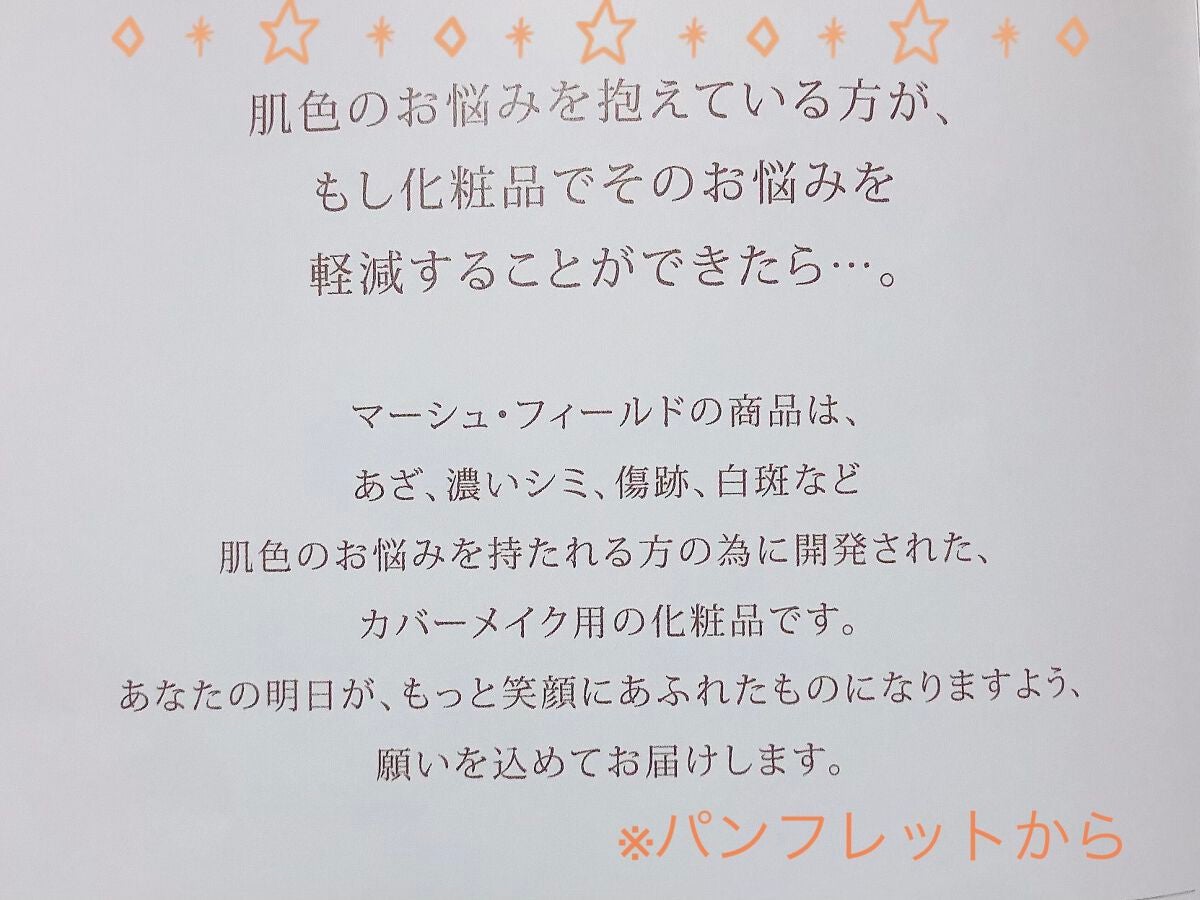 肌色のお悩みを抱えている方が、
もし化粧品でそのお悩みを
軽減することができたら…。
マーシュ・フィールドの商品は、
あざ、濃いシミ、傷跡、白斑など
肌色のお悩みを持たれる方の為に開発された、
カバーメイク用の化粧品です。
あなたの明日が、もっと笑顔にあふれたものになりますよう、
願いを込めてお届けします。
※パンフレットから